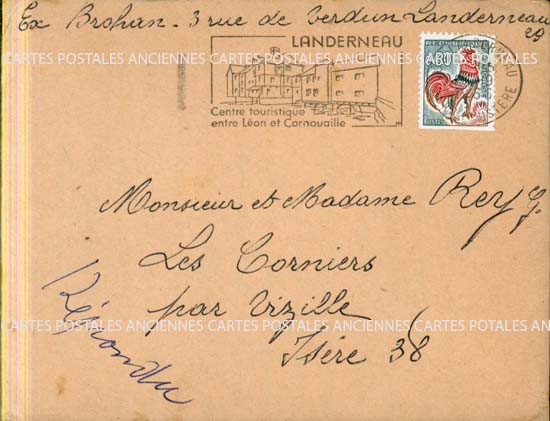 Ex Brohan - 3 rue de Verdun Landerneau
29
LANDERNEAU
Centre touristique
entre Léon et Cornouaille
Monsieur et Madame Rey J.
Les Corniers
par Vizille
Isère 38
Répondu
CARTES POSTALES ANCIENNES CARTES POSTALES ANCIENNES CARTES POSTALES
CARTES POSTALES ANCIENNES CARTES POSTALES ANCIENNES CARTES POSTALES
CARTES POSTALES ANCIENNES CARTES POSTALES ANCIENNES CARTES POSTALES